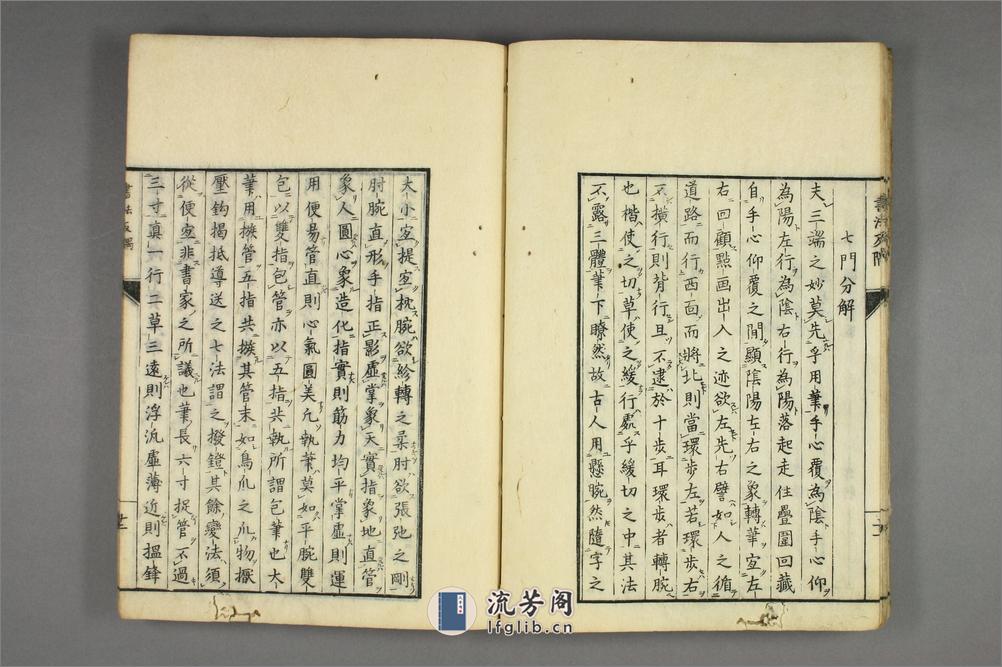 七門分解
夫三端之妙莫先乎用筆手心覆為陰手心仰
為陽左行為陰右行為陽落起走住疊圍回藏
自手心仰覆之間顯陰陽左右之象轉筆宜左
右回顧點画出入之迹欲左先右譬如人之循
道路而行行西面而將北則當環步左若環步右
不橫行則背行且不逮於十步耳環步者轉腕
也楷使之切草使之緩行處乎緩切之中其法
不露三體筆下瞭然故古人用懸腕然隨字之
大小宜提宜枕腕欲紾轉之柔肘欲張弛之剛
肘腕直形手指正影虛掌象天實指象地直管
象人圓心象造化指實則筋力均平掌虛則運
用便易管直則心氣圓美凡執筆莫如平腕雙
包以雙指包管亦以五指共執所謂包筆也大
筆用擫管五指共擫其管末如鳥爪之爪物擫
壓鈎揭抵導送之七法謂之撥鐙其餘變法須
從便宜非書家之所議也筆長六寸捉管不過
三寸真一行二草三遠則浮汎虛薄近則搵鋒
書法
流芳阁
lfglib.cn